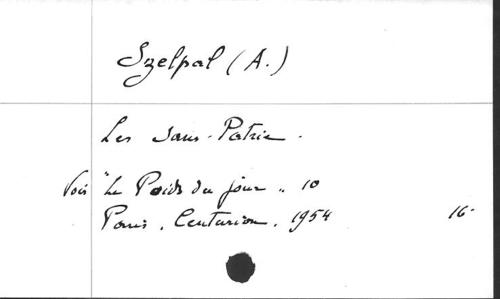 Szelpal (A.)
Les Sans-Patrie.
Voir "Le Poids du jour" 10
Paris, Centurion, 1954 16-